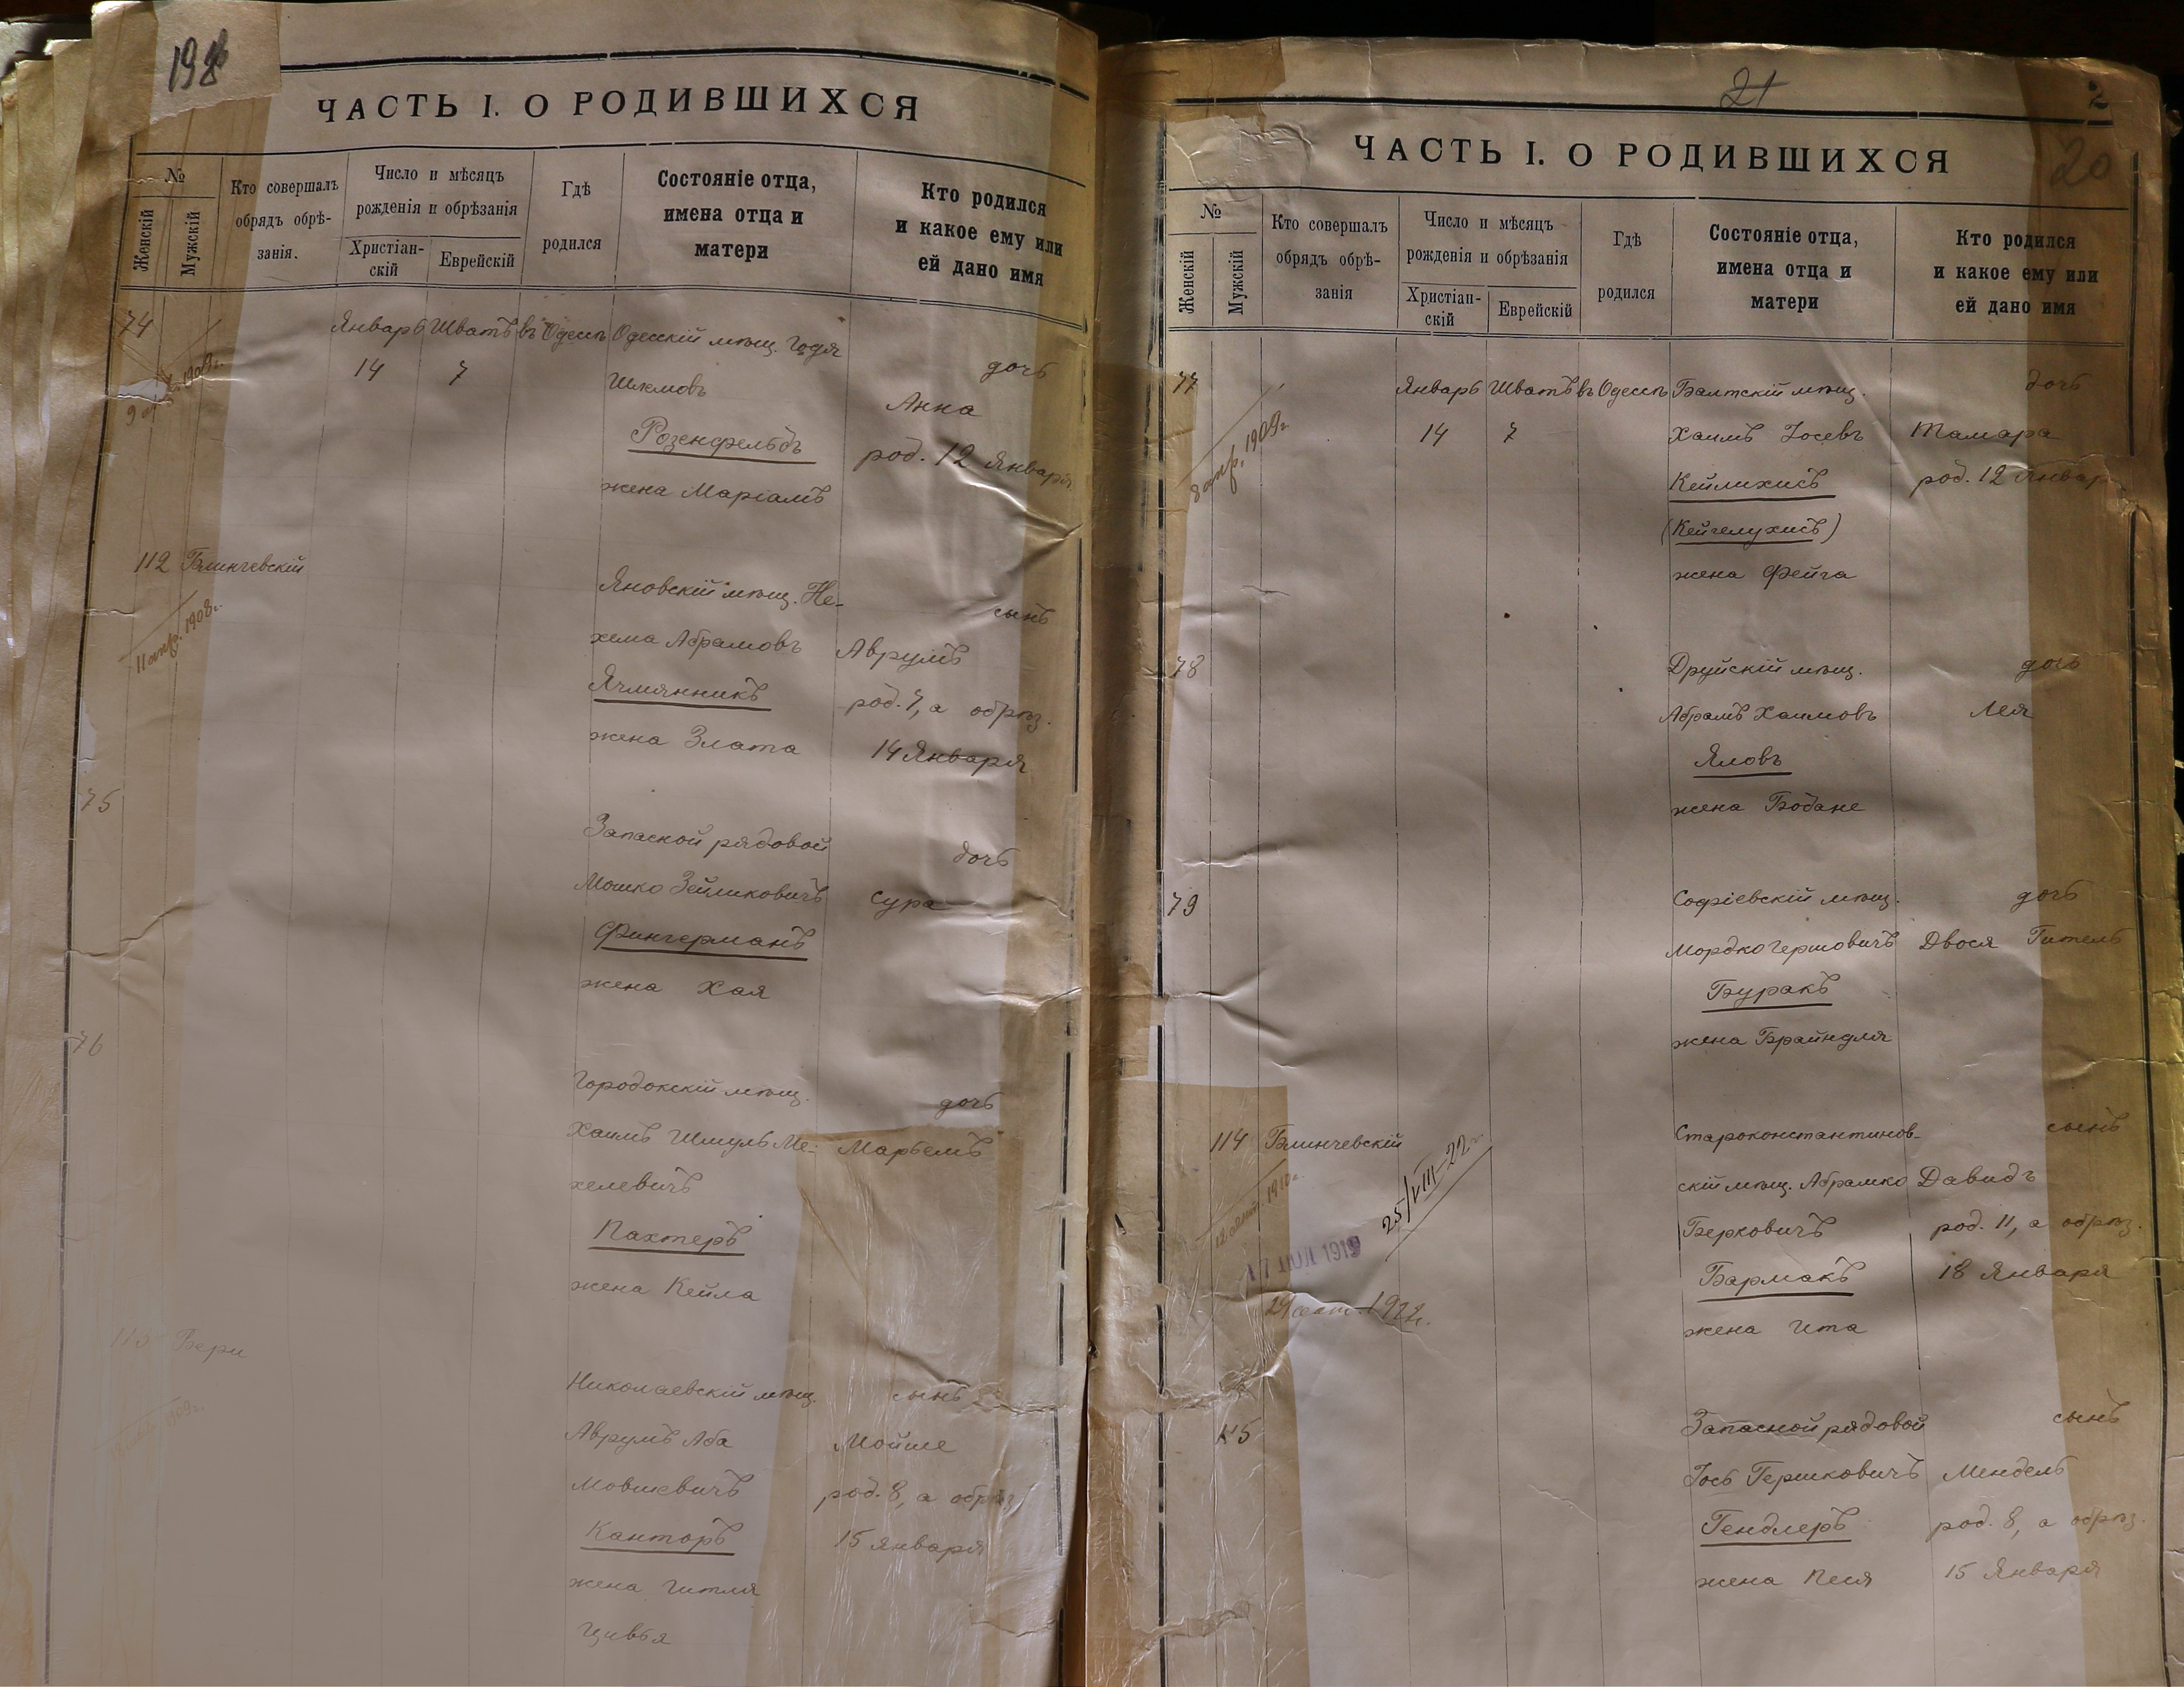 198
ЧАСТЬ I. О РОДИВШИХСЯ
№
Женскій
Мужскій
Кто совершалъ
обрядъ обрѣ-
занія.
Число и мѣсяцъ
рожденія и обрѣзанія
Христіан-
скій
Еврейскій
Гдѣ
родился
Состояніе отца,
имена отца и
матери
Кто родился
и какое ему или
ей дано имя
74 Январь Шватъ въ Одессѣ Одесскій мѣщ. Годя
дочь
14 7
Шлемовъ
Анна
Розенфельдъ
род. 12 Января
жена Маріамъ
1909г.
112 Блинчевскій
11 апр. 1908г.
Яновскій мѣщ. Не-
сынъ
хема Абрамовъ
Аврумъ
Ячмянникъ
род. 7, а обрѣз.
жена Злата
14 Января
75
Запасной рядовой
дочь
Мошко Зейликовичъ
Сура
Фингерманъ
жена Хая
76
Городокскій мѣщ.
дочь
Хаимъ Шмуль Ме-
Марьемъ
хелевичъ
Пахтеръ
жена Кейла
113 Бери
1909г.
Николаевскій мѣщ.
сынъ
Аврумъ Аба
Мойше
Мовшевичъ
род. 8, а обрѣз.
Канторъ
15 Января
жена Гитля
Цивья
21
2
20
ЧАСТЬ I. О РОДИВШИХСЯ
№
Женскій
Мужскій
Кто совершалъ
обрядъ обрѣ-
занія
Число и мѣсяцъ
рожденія и обрѣзанія
Христіан-
скій
Еврейскій
Гдѣ
родился
Состояніе отца,
имена отца и
матери
Кто родился
и какое ему или
ей дано имя
77 Январь Шватъ въ Одессѣ Балтскій мѣщ.
дочь
8 апр. 1909г.
14 7
Хаимъ Іосевъ
Тамара
Кейлихисъ
род. 12 Январ
(Кейгелухисъ)
жена Фейга
78
Друйскій мѣщ.
дочь
Абрамъ Хаимовъ
Лея
Яловъ
жена Бобане
79
Софіевскій мѣщ.
дочь
Мордко Гершовичъ
Двося Гитель
Буракъ
жена Брайндля
114 Блинчевскій
1910г.
25/VIII-22г.
17 ІЮЛ 1919
29 сент. 1922г.
Староконстантинов-
сынъ
скій мѣщ. Абрамко
Давидъ
Берковичъ
род. 11, а обрѣз.
Бармакъ
18 Января
жена Ита
115
Запасной рядовой
сынъ
Іось Гершковичъ
Мендель
Гендлеръ
род. 8, а обрѣз.
жена Песя
15 Января